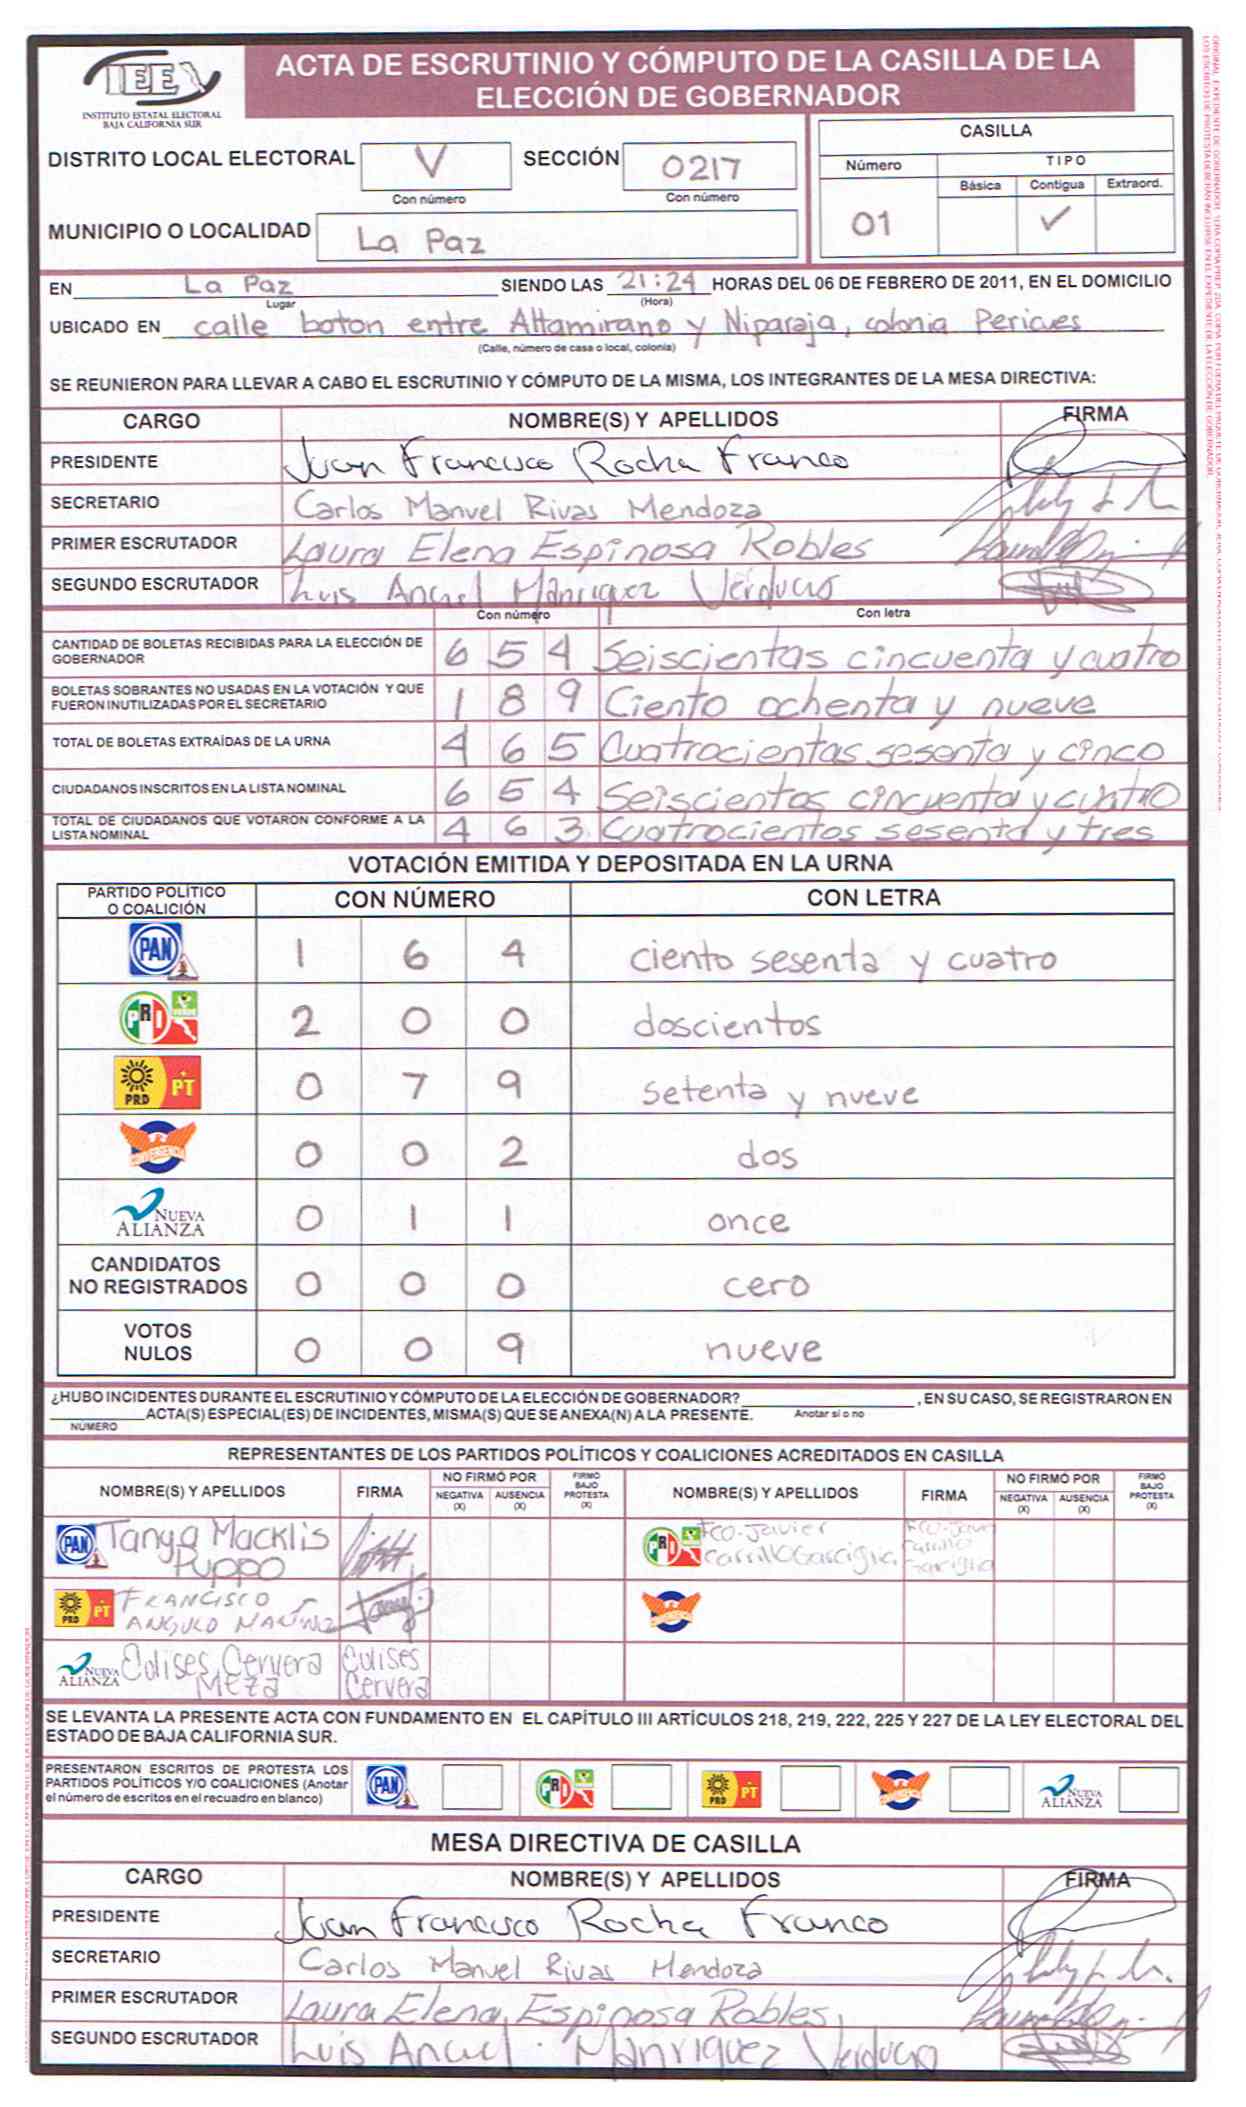 IEE
INSTITUTO ESTATAL ELECTORAL
BAJA CALIFORNIA SUR
ACTA DE ESCRUTINIO Y CÓMPUTO DE LA CASILLA DE LA
ELECCIÓN DE GOBERNADOR
DISTRITO LOCAL ELECTORAL V SECCIÓN 0217
Con número Con número
MUNICIPIO O LOCALIDAD La Paz
CASILLA
Número TIPO
Básica Contigua Extraord.
01 ✓
EN La Paz SIENDO LAS 21:24 HORAS DEL 06 DE FEBRERO DE 2011, EN EL DOMICILIO
Lugar (Hora)
UBICADO EN calle boton entre Altamirano y Niparaja, colonia Pericues
(Calle, número de casa o local, colonia)
SE REUNIERON PARA LLEVAR A CABO EL ESCRUTINIO Y CÓMPUTO DE LA MISMA, LOS INTEGRANTES DE LA MESA DIRECTIVA:
CARGO NOMBRE(S) Y APELLIDOS FIRMA
PRESIDENTE Juan Francisco Rocha Franco
SECRETARIO Carlos Manuel Rivas Mendoza
PRIMER ESCRUTADOR Laura Elena Espinosa Robles
SEGUNDO ESCRUTADOR Luis Angel Manriquez Verdugo
Con número Con letra
CANTIDAD DE BOLETAS RECIBIDAS PARA LA ELECCIÓN DE
GOBERNADOR 6 5 4 Seiscientas cincuenta y cuatro
BOLETAS SOBRANTES NO USADAS EN LA VOTACIÓN Y QUE
FUERON INUTILIZADAS POR EL SECRETARIO 1 8 9 Ciento ochenta y nueve
TOTAL DE BOLETAS EXTRAÍDAS DE LA URNA 4 6 5 Cuatrocientas sesenta y cinco
CIUDADANOS INSCRITOS EN LA LISTA NOMINAL 6 5 4 Seiscientos cincuenta y cuatro
TOTAL DE CIUDADANOS QUE VOTARON CONFORME A LA
LISTA NOMINAL 4 6 3 Cuatrocientos sesenta y tres
VOTACIÓN EMITIDA Y DEPOSITADA EN LA URNA
PARTIDO POLÍTICO
O COALICIÓN CON NÚMERO CON LETRA
PAN 1 6 4 ciento sesenta y cuatro
PRI VERDE 2 0 0 doscientos
PRD PT 0 7 9 setenta y nueve
CONVERGENCIA 0 0 2 dos
NUEVA ALIANZA 0 1 1 once
CANDIDATOS
NO REGISTRADOS 0 0 0 cero
VOTOS
NULOS 0 0 9 nueve
¿HUBO INCIDENTES DURANTE EL ESCRUTINIO Y CÓMPUTO DE LA ELECCIÓN DE GOBERNADOR? , EN SU CASO, SE REGISTRARON EN
ACTA(S) ESPECIAL(ES) DE INCIDENTES, MISMA(S) QUE SE ANEXA(N) A LA PRESENTE. Anotar sí o no
NÚMERO
REPRESENTANTES DE LOS PARTIDOS POLÍTICOS Y COALICIONES ACREDITADOS EN CASILLA
NOMBRE(S) Y APELLIDOS FIRMA NO FIRMÓ POR NEGATIVA (X) AUSENCIA (X) FIRMÓ BAJO PROTESTA (X) NOMBRE(S) Y APELLIDOS FIRMA NO FIRMÓ POR NEGATIVA (X) AUSENCIA (X) FIRMÓ BAJO PROTESTA (X)
PAN Tanya Macklis Puppo PRI VERDE Fco. Javier Carrillo Garciglia
PRD PT FRANCISCO ANGULO CONVERGENCIA
NUEVA ALIANZA Eulises Cervera Meza Eulises Cervera
SE LEVANTA LA PRESENTE ACTA CON FUNDAMENTO EN EL CAPÍTULO III ARTÍCULOS 218, 219, 222, 225 Y 227 DE LA LEY ELECTORAL DEL
ESTADO DE BAJA CALIFORNIA SUR.
PRESENTARON ESCRITOS DE PROTESTA LOS
PARTIDOS POLÍTICOS Y/O COALICIONES (Anotar
el número de escritos en el recuadro en blanco) PAN PRI VERDE PRD PT CONVERGENCIA NUEVA ALIANZA
MESA DIRECTIVA DE CASILLA
CARGO NOMBRE(S) Y APELLIDOS FIRMA
PRESIDENTE Juan Francisco Rocha Franco
SECRETARIO Carlos Manuel Rivas Mendoza
PRIMER ESCRUTADOR Laura Elena Espinosa Robles
SEGUNDO ESCRUTADOR Luis Angel Manriquez Verdugo